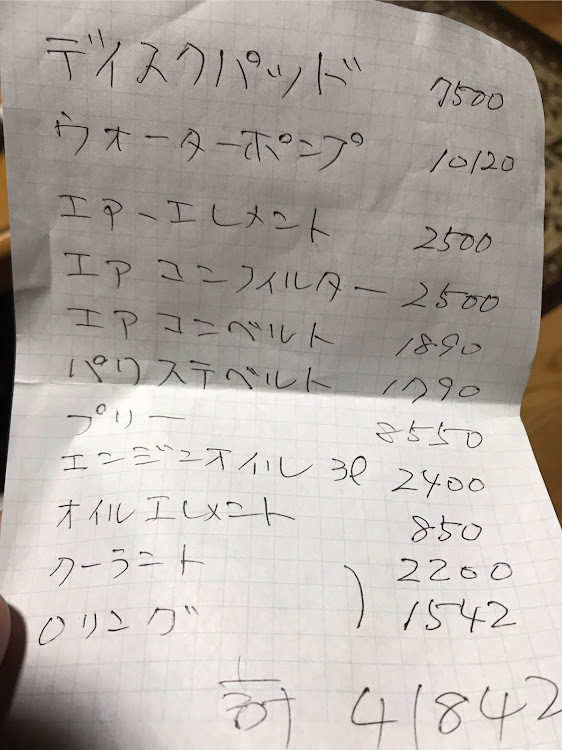 ディスクパッド 7500
ウオーターポンプ 10120
エアーエレメント 2500
エアコンフィルター 2500
エアコンベルト 1890
パワステベルト 1790
プリー 8550
エンジンオイル 3ℓ 2400
オイルエレメント 850
クーラント ) 2200
Oリング 1542
計 41842